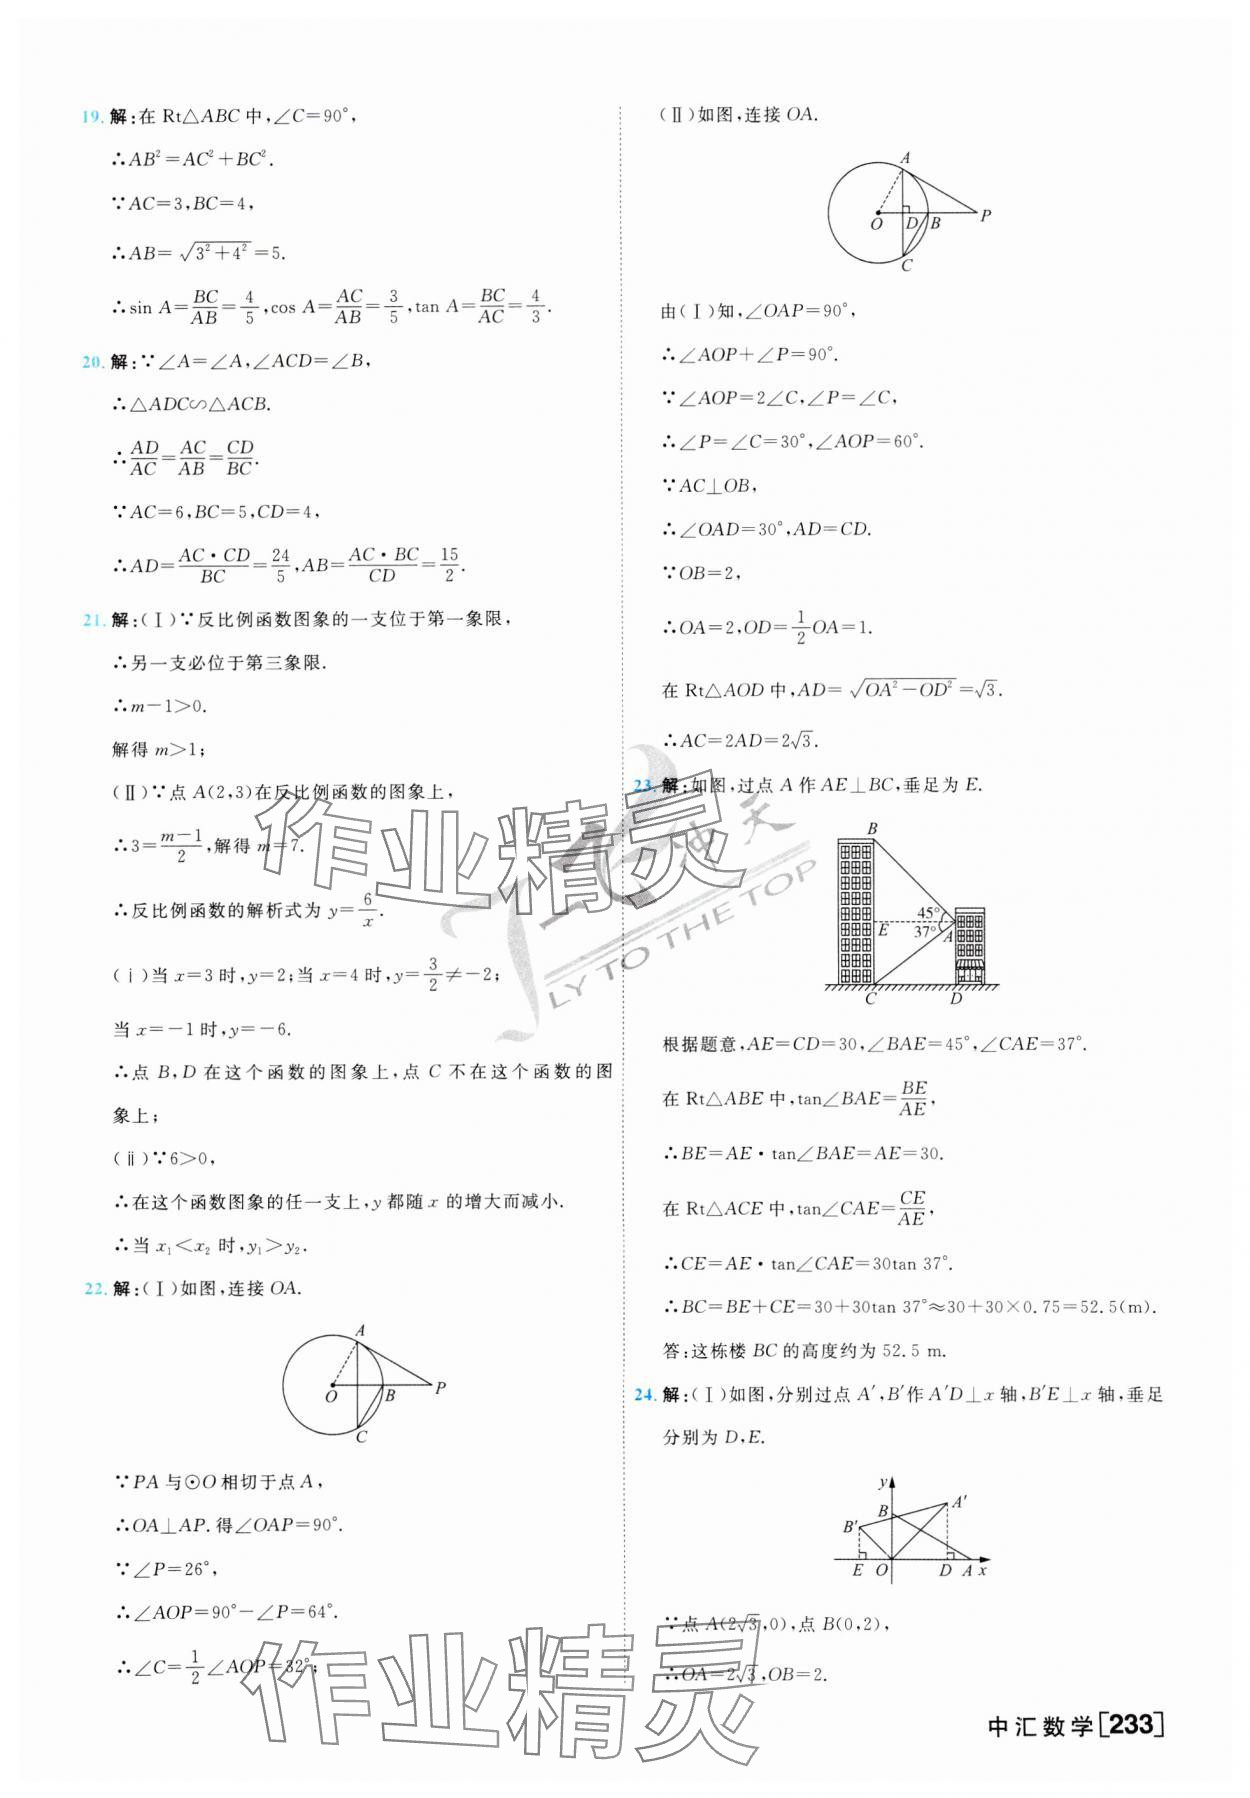 19. 解:在 Rt△ABC 中,∠C=90°,
∴AB²=AC²+BC².
∵AC=3,BC=4,
∴AB=√(3²+4²)=5.
∴sin A=BC/AB=4/5,cos A=AC/AB=3/5,tan A=BC/AC=4/3.
20. 解:∵∠A=∠A,∠ACD=∠B,
∴△ADC∽△ACB.
∴AD/AC=AC/AB=CD/BC.
∵AC=6,BC=5,CD=4,
∴AD=AC·CD/BC=24/5,AB=AC·BC/CD=15/2.
21. 解:(Ⅰ)∵反比例函数图象的一支位于第一象限,
∴另一支必位于第三象限.
∴m-1>0.
解得 m>1;
(Ⅱ)∵点 A(2,3)在反比例函数的图象上,
∴3=(m-1)/2,解得 m=7.
∴反比例函数的解析式为 y=6/x.
(ⅰ)当 x=3 时,y=2;当 x=4 时,y=3/2≠-2;
当 x=-1 时,y=-6.
∴点 B,D 在这个函数的图象上,点 C 不在这个函数的图
象上;
(ⅱ)∵6>0,
∴在这个函数图象的任一支上,y 都随 x 的增大而减小.
∴当 x₁<x₂ 时,y₁>y₂.
22. 解:(Ⅰ)如图,连接 OA.
A
O
B
P
C
∵PA 与⊙O 相切于点 A,
∴OA⊥AP.得∠OAP=90°.
∵∠P=26°,
∴∠AOP=90°-∠P=64°.
∴∠C=1/2∠AOP=32°;
(Ⅱ)如图,连接 OA.
A
O
D
B
P
C
由(Ⅰ)知,∠OAP=90°,
∴∠AOP+∠P=90°.
∵∠AOP=2∠C,∠P=∠C,
∴∠P=∠C=30°,∠AOP=60°.
∵AC⊥OB,
∴∠OAD=30°,AD=CD.
∵OB=2,
∴OA=2,OD=1/2OA=1.
在 Rt△AOD 中,AD=√(OA²-OD²)=√3.
∴AC=2AD=2√3.
23. 解:如图,过点 A 作 AE⊥BC,垂足为 E.
B
45°
E
37°
A
C
D
根据题意,AE=CD=30,∠BAE=45°,∠CAE=37°.
在 Rt△ABE 中,tan∠BAE=BE/AE,
∴BE=AE·tan∠BAE=AE=30.
在 Rt△ACE 中,tan∠CAE=CE/AE,
∴CE=AE·tan∠CAE=30tan 37°.
∴BC=BE+CE=30+30tan 37°≈30+30×0.75=52.5(m).
答:这栋楼 BC 的高度约为 52.5 m.
24. 解:(Ⅰ)如图,分别过点 A′,B′作 A′D⊥x 轴,B′E⊥x 轴,垂足
分别为 D,E.
y
A′
B
B′
E
O
D
A
x
∵点 A(2√3,0),点 B(0,2),
∴OA=2√3,OB=2.
作业精灵
冲天
FLY TO THE TOP
作业精灵
中汇数学[233]